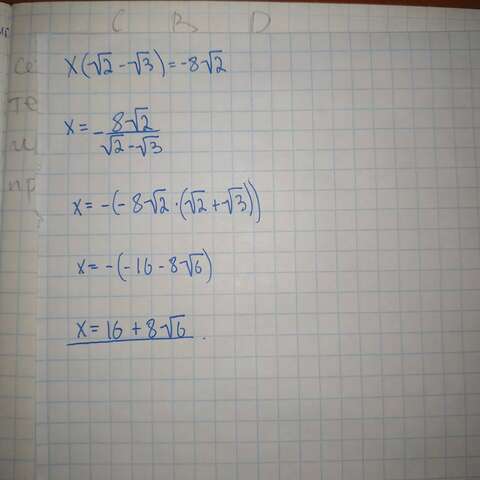 C B D
x(√2 - √3) = -8√2
x = - 8√2 / √2 - √3
x = -(-8√2 · (√2 + √3))
x = -(-16 - 8√6)
x = 16 + 8√6.